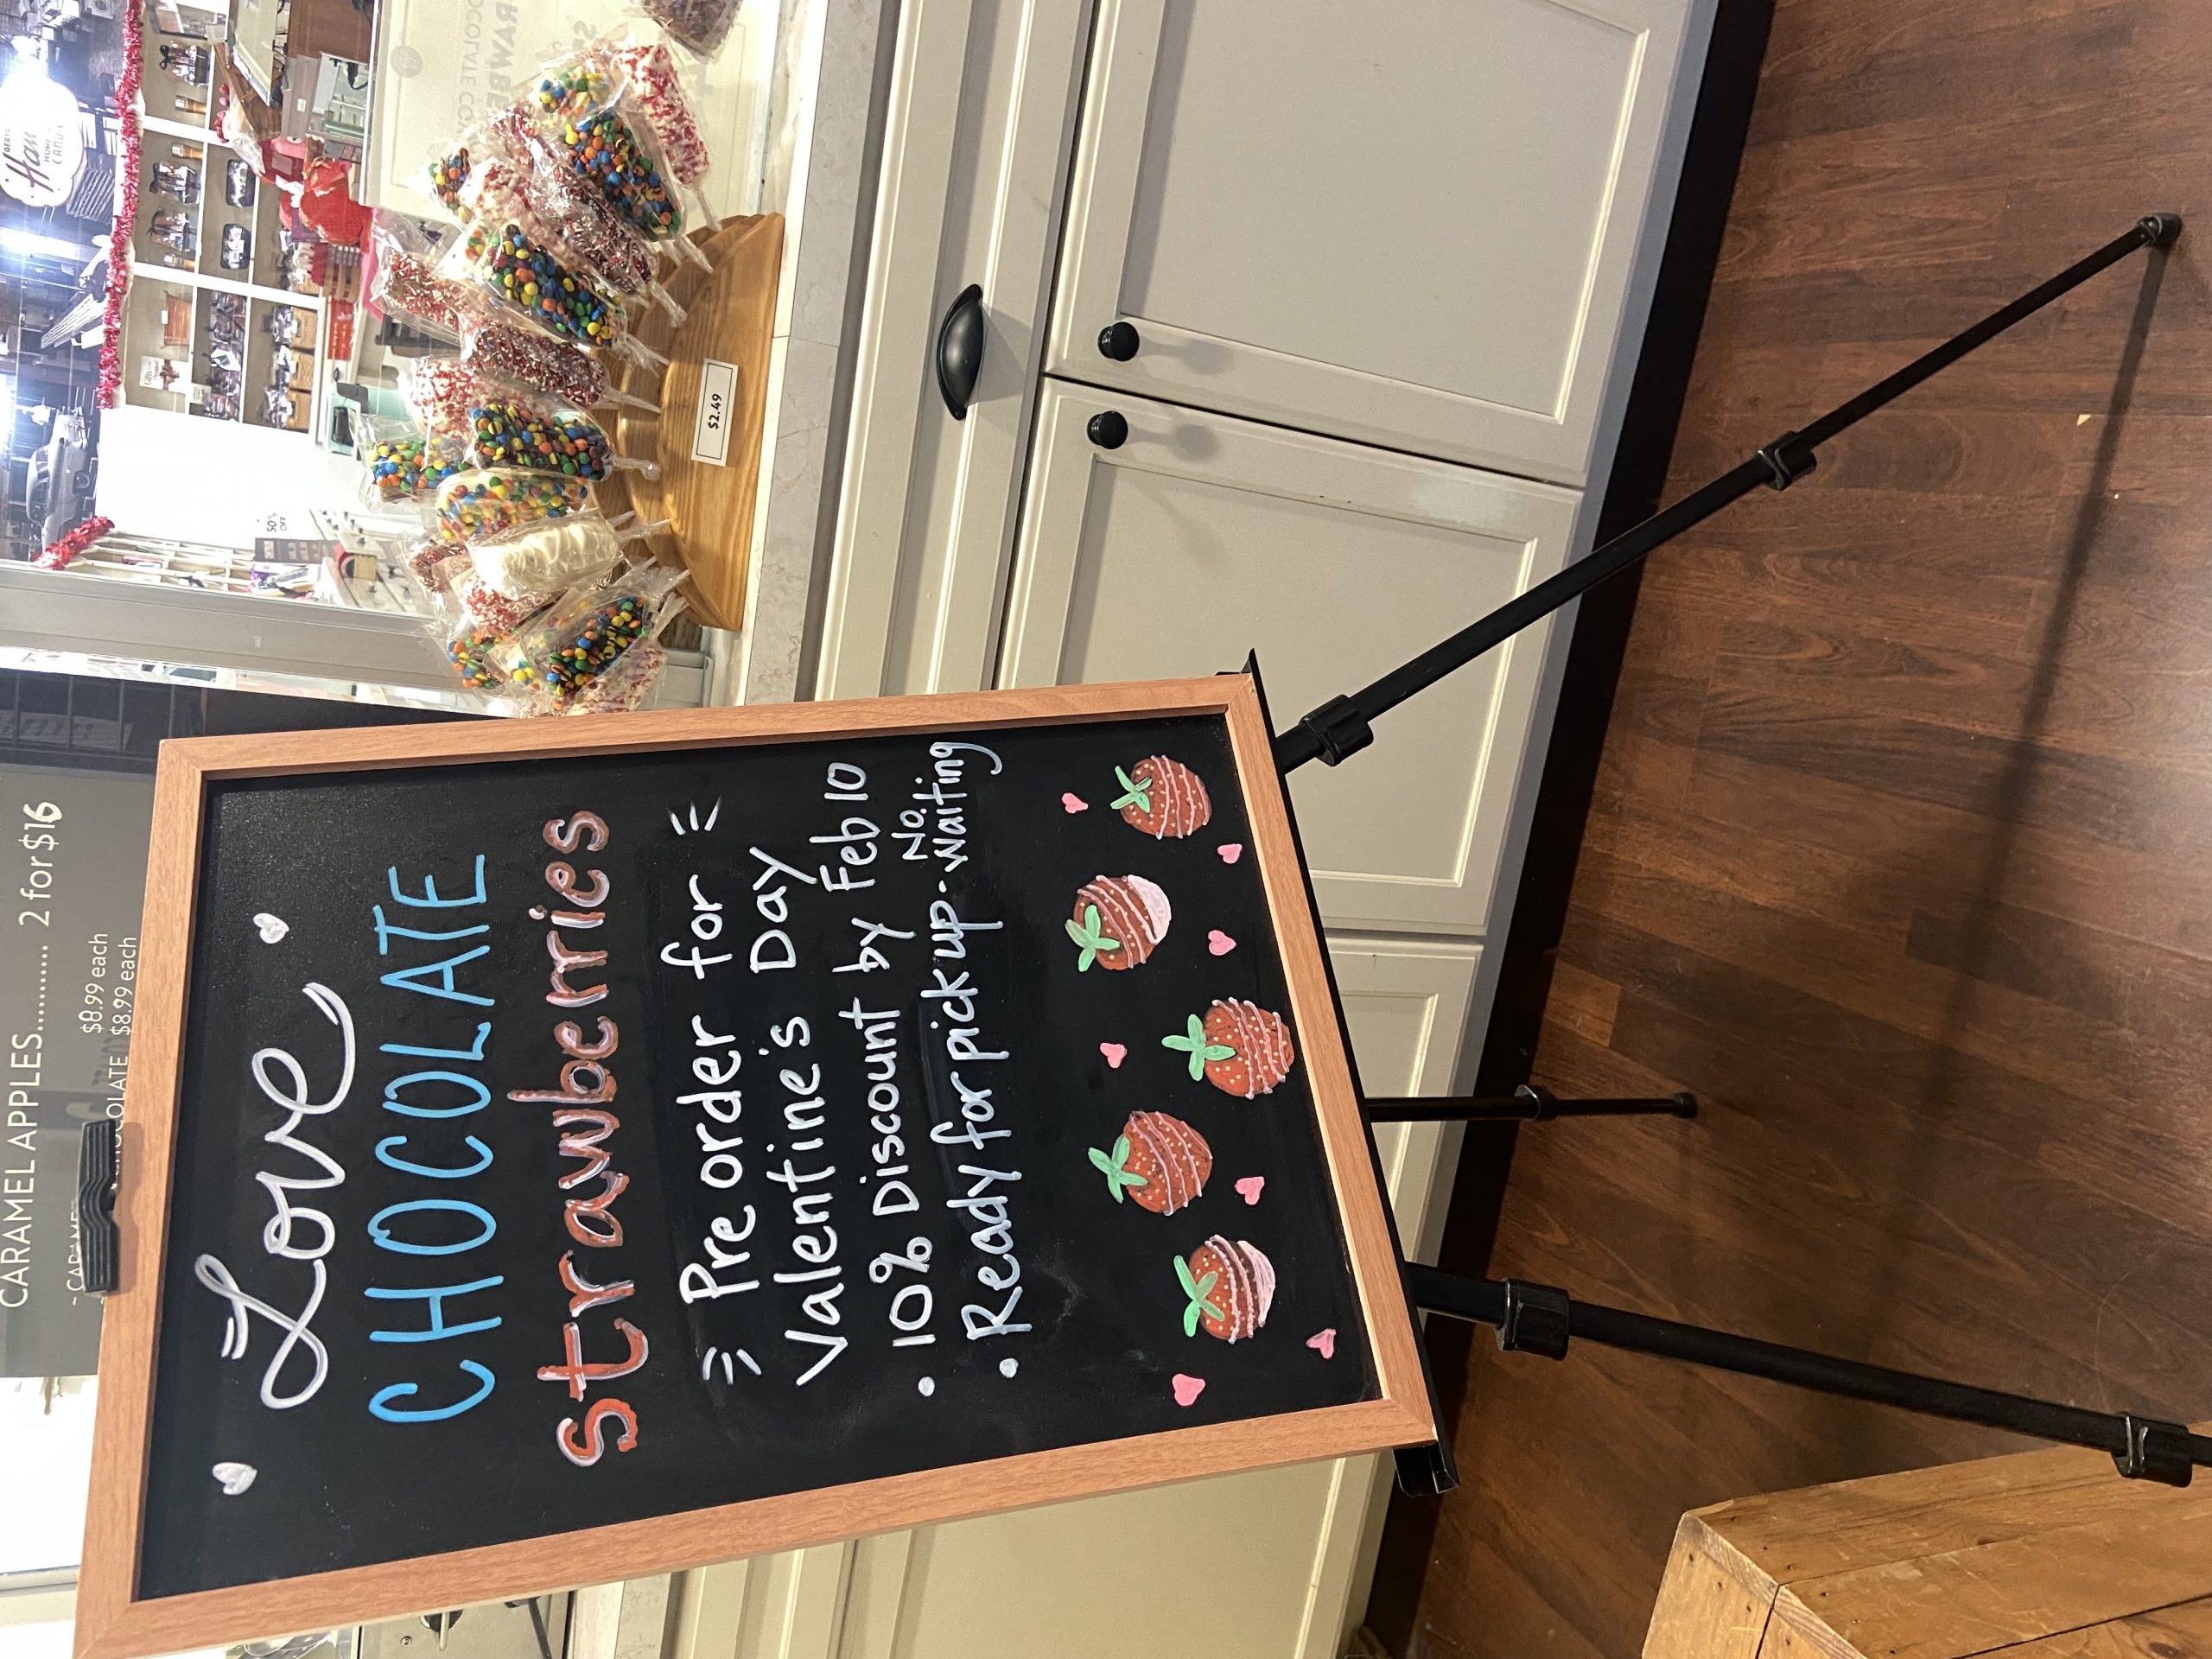 Love
CHOCOLATE
strawberries
Pre order for
Valentine's Day
• 10% Discount by Feb 10
• Ready for pick up - No waiting
CARAMEL APPLES.......... 2 for $16
$8.99 each
$8.99 each
$2.49
50% OFF